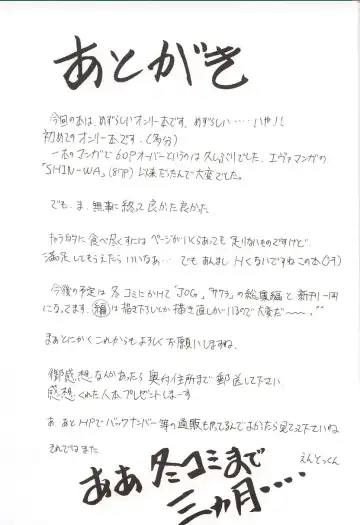 あとがき
今回の本は、めずらしいオンリー本です、めずらしい……いや!!
初めてのオンリー本です.(多分)
一本のマンガで60Pオーバーというのは久しぶりでした、エヴァマンガの
「SHIN-WA」(87P)以来だったんで大変でした。
でも、ま、無事に終って良かった良かった
キャラ的に食べ尽くすにはページがいくらあっても足りないものですけど、
満足してもらえたらいいなぁ… でもあんましHくないですねこの本(汗)
今後の予定は冬コミにかけて「JOG」「サクラ」の総集編と新刊一冊
になってます、編は描き下ろしてか描き直しか…するので大変だ〜〜。
まぁとにかくこれからもよろしくお願いしますね、
御感想なんかあったら奥付住所まで郵送して下さい、
感想くれた人本プレゼントしまーす
あ、あとHPでバックナンバー等の通販もやってるんでよかったら見て下さいね
それではまた
えんとっくん
ああ冬コミまで
三ヵ月・・・・